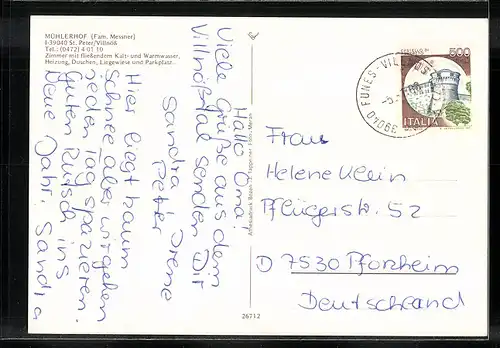 MÜHLERHOF (Fam. Messner)
I-39040 St. Peter/Villnöß
Tel.: (0472) 4 01 10
Zimmer mit fließendem Kalt- und Warmwasser,
Heizung, Duschen, Liegewiese und Parkplatz.
Hallo Oma!
Viele Grüße aus dem
Villnößtal senden Dir
Sandra Irene
Peter
Hier liegt kaum
Schnee aber wir gehen
jeden Tag spazieren.
Guten Rutsch ins
Neue Jahr. Sandra
26712
500
ITALIA
39040 FUNES-VILLNÖSS
Frau
Helene Klein
Pflügerstr. 52
D 7530 Pforzheim
Deutschland